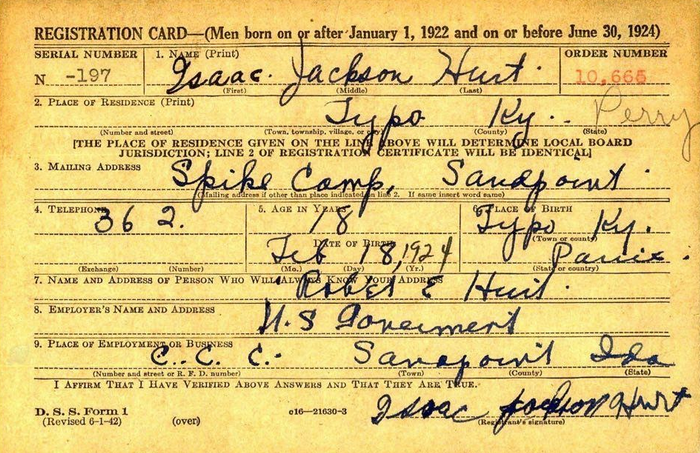 REGISTRATION CARD—(Men born on or after January 1, 1922 and on or before June 30, 1924)
SERIAL NUMBER 1. NAME (Print) ORDER NUMBER
N -197 Isaac. Jackson Hurt. 10,665
(First) (Middle) (Last)
2. PLACE OF RESIDENCE (Print)
Typo Ky. Perry
(Number and street) (Town, township, village, or city) (County) (State)
[THE PLACE OF RESIDENCE GIVEN ON THE LINE ABOVE WILL DETERMINE LOCAL BOARD
JURISDICTION; LINE 2 OF REGISTRATION CERTIFICATE WILL BE IDENTICAL]
3. MAILING ADDRESS
Spike Camp, Sandpoint.
(Mailing address if other than place indicated on line 2. If same insert word same)
4. TELEPHONE 5. AGE IN YEARS 6. PLACE OF BIRTH
362. 18 Typo Ky.
DATE OF BIRTH (Town or county)
Feb 18, 1924
(Exchange) (Number) (Mo.) (Day) (Yr.) (State or country)
7. NAME AND ADDRESS OF PERSON WHO WILL ALWAYS KNOW YOUR ADDRESS
Robert E Hurt.
8. EMPLOYER'S NAME AND ADDRESS
U.S Goverment
9. PLACE OF EMPLOYMENT OR BUSINESS
C.. C. C.- Sandpoint Ida
(Number and street or R. F. D. number) (Town) (County) (State)
I AFFIRM THAT I HAVE VERIFIED ABOVE ANSWERS AND THAT THEY ARE TRUE.
D. S. S. Form 1 c16—21630-3 Isaac Jackson Hurt
(Revised 6-1-42) (over) (Registrant's signature)